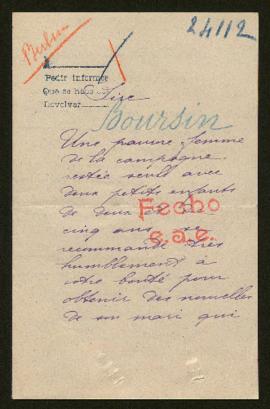 24112
Pedir informes
Que se haga
Devolver
Sire
Boursin
Une pauvre femme
de la campagne
restée seule avec
deux petits enfants
de deux et
cinq ans se
recommande très
humblement à
votre bonté pour
obtenir des nouvelles
de son mari qui
Fecho